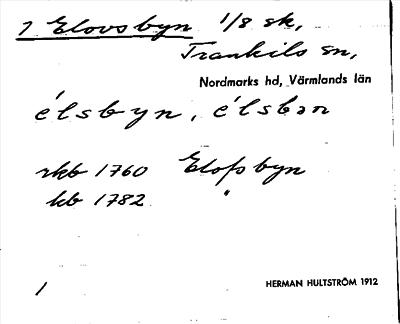 1 Elovsbyn 1/8 sk,
Trankils sn,
Nordmarks hd, Värmlands län
élsbyn, élsbən
rkb 1760 Elofsbyn
kb 1782 "
1
HERMAN HULTSTRÖM 1912